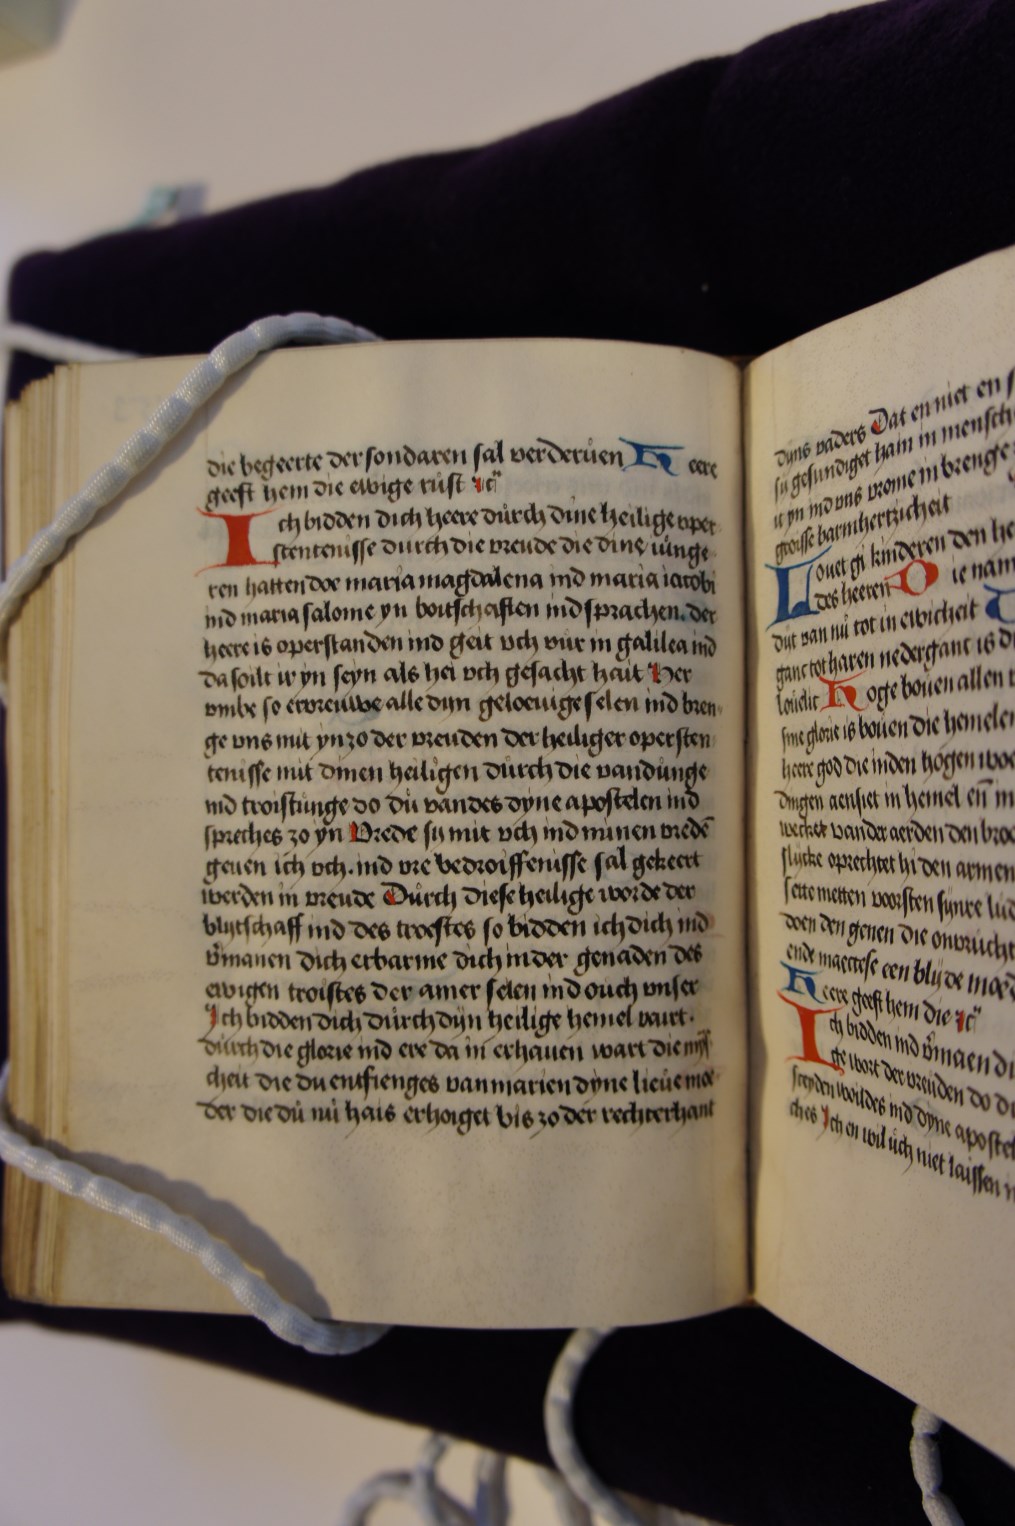 die begeerte der sondaren sal verderuen Heere
geeft hem die ewige rust ꝛc̈
Ich bidden dich heere durch dine heilige oper
stentenisse durch die vreude die dine iunge
ren hatten doe maria magdalena ind maria iacobi
ind maria salome yn boitschaften ind sprachen. der
heere is operstanden ind geit vch vur in galilea ind
da soilt ir yn seyn als hei vch gesacht hait Her
vmbe so ervreuwe alle dyn geloeuige selen ind bren
ge vns mit yn zo der vreuden der heiliger opersten
tenisse mit dinen heiligen durch die vandunge
ind troistunge do du vandes dyne apostelen ind
spreches zo yn Vrede sy mit vch ind minen vredē
geuen ich vch. ind vre bedroiffenisse sal gekeert
werden in vreude Durch diese heilige worde der
blijtschaff ind des troestes so bidden ich dich ind
v̄manen dich erbarme dich in der genaden des
ewigen troistes der amer selen ind ouch vnser
Ich bidden dich durch dijn heilige hemel vairt.
durch die glorie ind ere da in erhauen wart die
cheit die du entfienges van marien dyne lieue moe
der die du nu hais erhoiget bis zo der rechterhant
dyns vaders Dat en niet en
sy gesundiget hain in mensch
it yn ind vns vrome in brenge
groisse barmhertzicheit
Louet gi kinderen den he
des heeren Die nam
dijt van nu tot in ewicheit
ganc tot haren nederganc is
louelic Hoge bouen allen
sine glorie is bouen die hemelen
heere god die in den hogen
dingen aensiet in hemel en̄
wecket van der aerden den
slijcke oprechtet hi den armen
sette metten voorsten synre
doen den genen die onvrucht
ende maectese een blijde
Heere geeft hem die ꝛc̈
Ich bidden ind v̄maen
ge wort der vreuden do
scheyden woildes ind dyne apostel
ches Ich en wil uch niet laissen